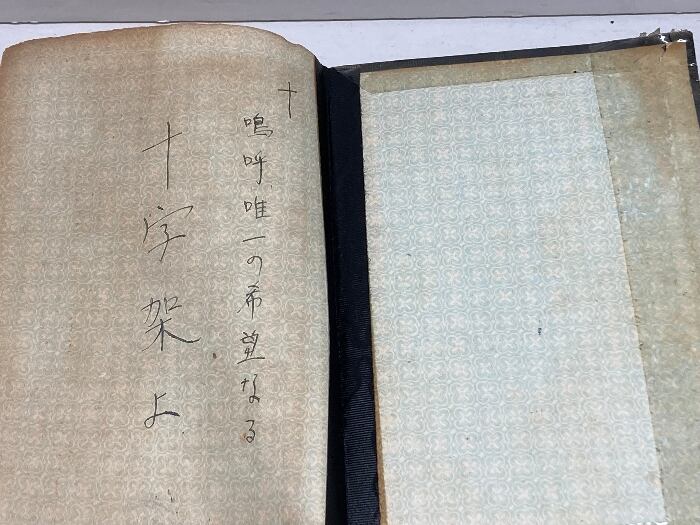 †
嗚呼唯一の希望なる
十字架よ